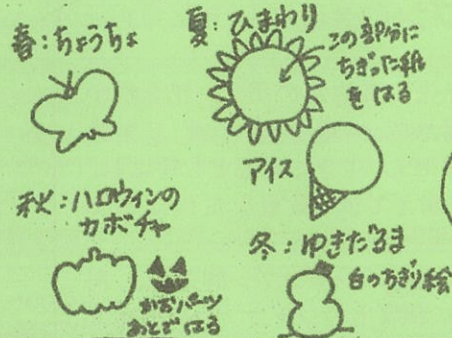 春:ちょうちょ
夏:ひまわり
この部分に
ちぎった紙
をはる
アイス
秋:ハロウィンの
カボチャ
かおパーツ
あとではる
冬:ゆきだるま
白のちぎり絵